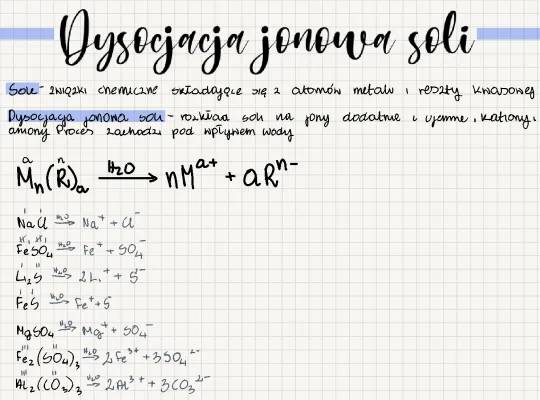 Dysocjacja jonowa soli
Sole - związki chemiczne składające się z atomów metalu i reszty kwasowej
Dysocjacja jonowa soli - rozkład soli na jony dodatnie i ujemne, kationy i
aniony Proces zachodzi pod wpływem wody
a n
Mₙ(R)ₐ —H₂O→ nMᵃ⁺ + aRⁿ⁻
I I
NaCl —H₂O→ Na⁺ + Cl⁻
II II
FeSO₄ —H₂O→ Fe⁺ + SO₄⁻
I II
Li₂S —H₂O→ 2Li⁺ + S²⁻
FeS —H₂O→ Fe⁺ + S
MgSO₄ —H₂O→ Mg⁺ + SO₄⁻
III II
Fe₂(SO₄)₃ —H₂O→ 2Fe³⁺ + 3SO₄²⁻
III II
Al₂(CO₃)₃ —H₂O→ 2Al³⁺ + 3CO₃²⁻